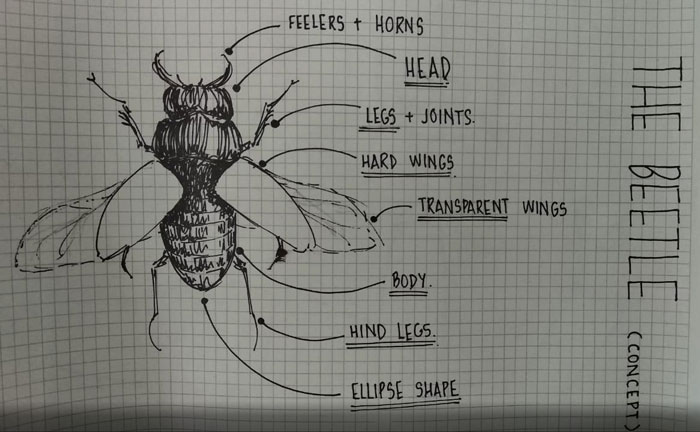 FEELERS + HORNS
HEAD
LEGS + JOINTS.
HARD WINGS
TRANSPARENT WINGS
BODY.
HIND LEGS.
ELLIPSE SHAPE
THE BEETLE
(CONCEPT)